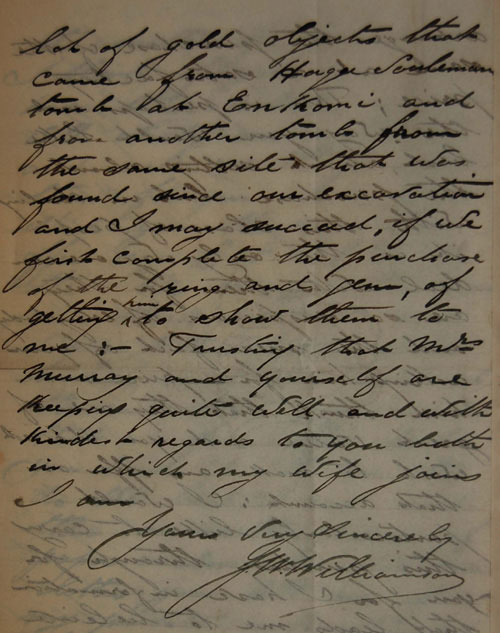 lot of gold objects that
came from Hagee Souleman
tomb at Enkomi; and
from another tomb from
the same site that was
found since our excavation
and I may succeed, if we
first complete the purchase
of the ring and gem, of
getting him to show them to
me :- Trusting that Mrs
Murray and yourself are
keeping quite well and with
kindest regards to you both
in which my wife joins
I am
Yours Very Sincerely
J.W. Williamson